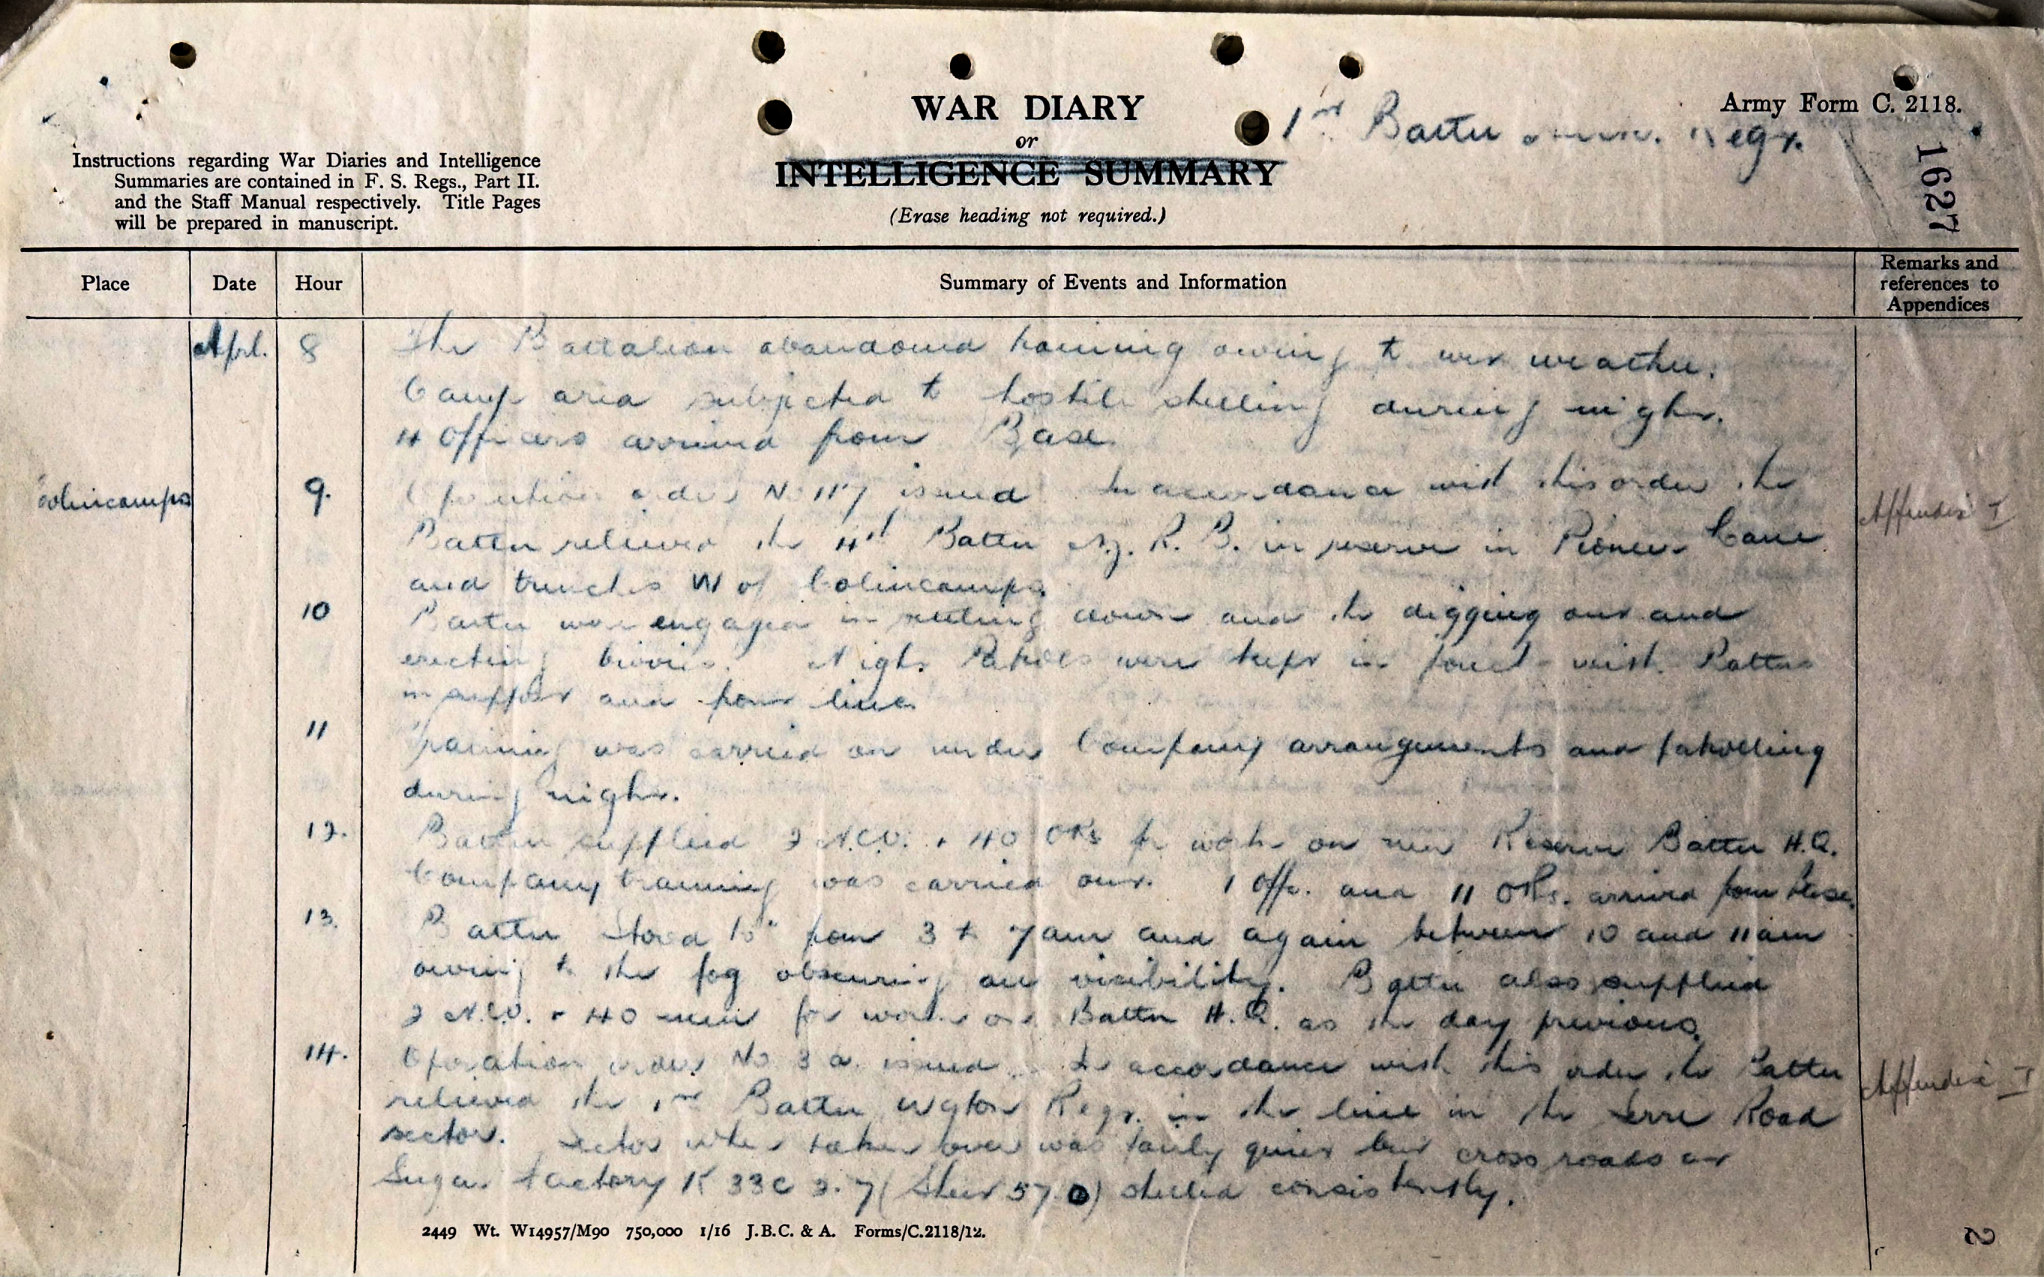 WAR DIARY
or
INTELLIGENCE SUMMARY
(Erase heading not required.)
1st Battn Regt.
Army Form C. 2118.
1627
Instructions regarding War Diaries and Intelligence
Summaries are contained in F. S. Regs., Part II.
and the Staff Manual respectively. Title Pages
will be prepared in manuscript.
Place
Date
Hour
Summary of Events and Information
Remarks and
references to
Appendices
April. 8 The Battalion abandoned training owing to wet weather.
Camp area subjected to hostile shelling during night.
4 Officers arrived from Base.
Colincamps 9. Operation order No 117 issued. In accordance with this order the Appendix I
Battn relieved the 4th Battn N.Z. R. B. in reserve in Pioneer Camp
and trenches W of Colincamps.
10 Battn was engaged in settling down and the digging out and
erecting bivvies. Night Patrols were kept in touch with Battns
in support and front line.
11 Training was carried on under Company arrangements and patrolling
during night.
12. Battn supplied 2 N.C.O. + 40 ORs for work on new Reserve Battn H.Q.
Company training was carried out. 1 Offr. and 11 ORs. arrived from Base.
13. Battn "Stood to" from 3 to 7 am and again between 10 and 11 am
owing to the fog obscuring all visibility. Battn also supplied
2 N.C.O. + 40 men for work on Battn H.Q. as the day previous.
14. Operation order No 3 a. issued. In accordance with this order the Battn Appendix I
relieved the 1st Battn Wgton Regt. in the line in the Serre Road
sector. Sector when taken over was fairly quiet but cross roads at
Sugar Factory K 33c 2.7 (Sheet 57 D) shelled consistently.
2449 Wt. W14957/M90 750,000 1/16 J.B.C. & A. Forms/C.2118/12.
2